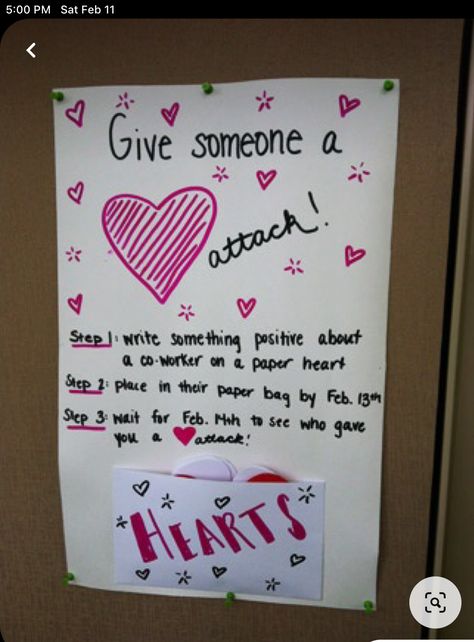 5:00 PM Sat Feb 11
Give someone a
attack!
Step 1: write something positive about
a co-worker on a paper heart
Step 2: place in their paper bag by Feb. 13th
Step 3: wait for Feb. 14th to see who gave
you a attack!
HEARTS